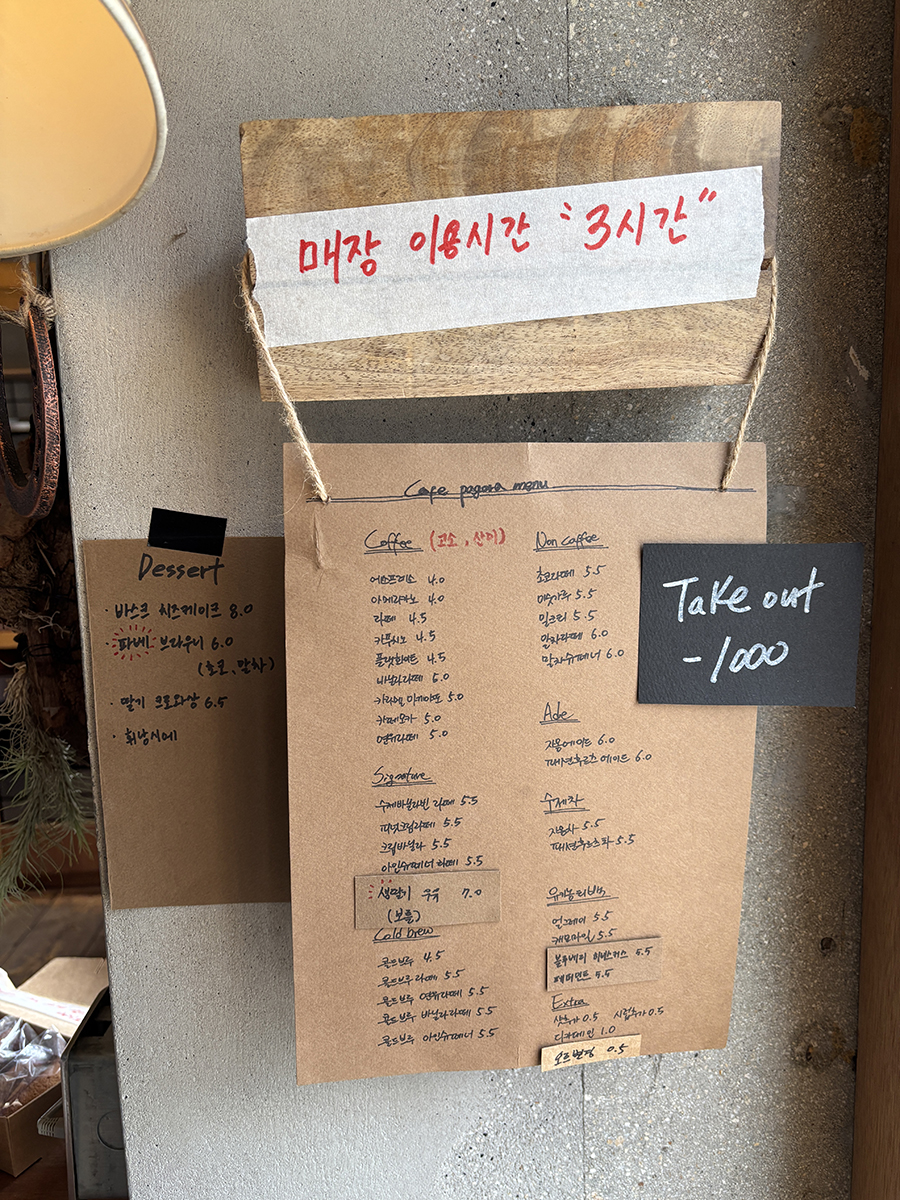 매장 이용시간 "3시간"
Cafe pagora menu
Coffee (고소, 산미)
에스프레소 4.0
아메리카노 4.0
라떼 4.5
카푸치노 4.5
플랫화이트 4.5
바닐라라떼 5.0
카라멜 마끼아또 5.0
카페모카 5.0
연유라떼 5.0
Signature
수제바닐라빈 라떼 5.5
피넛크림라떼 5.5
크림바닐라 5.5
아인슈페너 라떼 5.5
생딸기 우유 7.0
(보틀)
Cold brew
콜드브루 4.5
콜드브루 라떼 5.5
콜드브루 연유라떼 5.5
콜드브루 바닐라라떼 5.5
콜드브루 아인슈페너 5.5
Non coffee
초코라떼 5.5
미숫가루 5.5
밀크티 5.5
말차라떼 6.0
말차슈페너 6.0
Ade
자몽에이드 6.0
패션후르츠 에이드 6.0
수제차
자몽차 5.5
패션후르츠차 5.5
유기농 티백
얼그레이 5.5
캐모마일 5.5
블루베리 히비스커스 5.5
페퍼민트 5.5
Extra
샷추가 0.5 시럽추가 0.5
디카페인 1.0
오트변경 0.5
Take out
-1000
Dessert
· 바스크 치즈케이크 8.0
· 파베 브라우니 6.0
(초코, 말차)
· 딸기 크로와상 6.5
· 휘낭시에